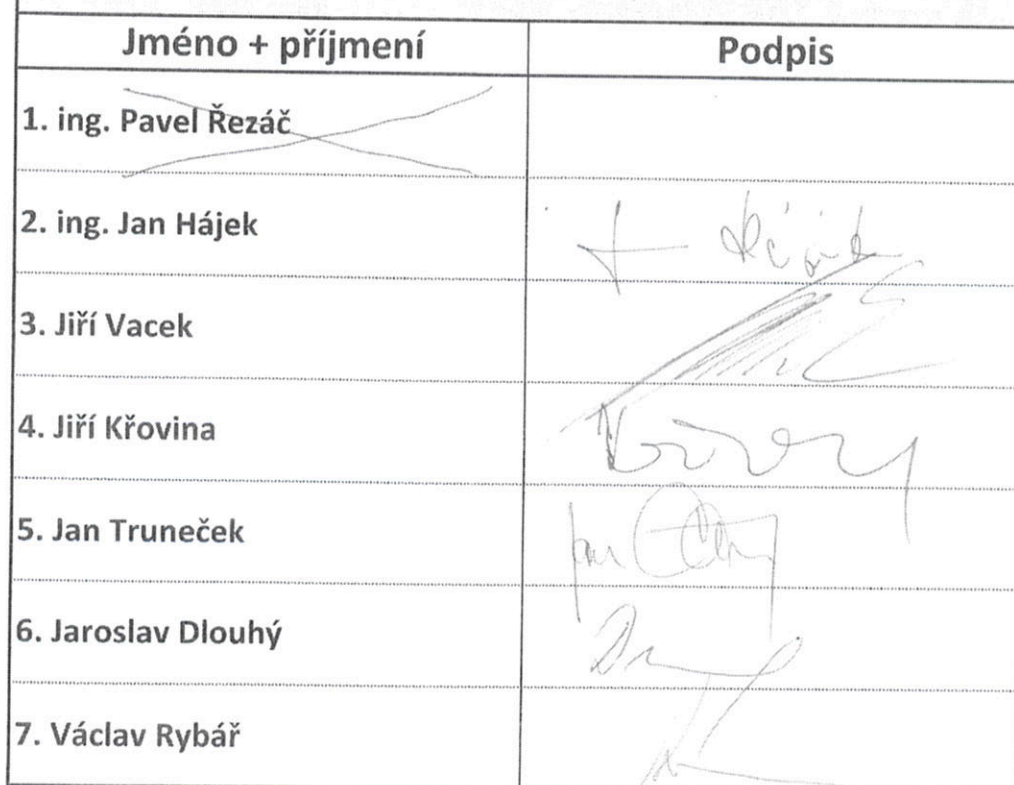 Jméno + příjmení Podpis
1. ing. Pavel Řezáč
2. ing. Jan Hájek
3. Jiří Vacek
4. Jiří Křovina
5. Jan Truneček
6. Jaroslav Dlouhý
7. Václav Rybář